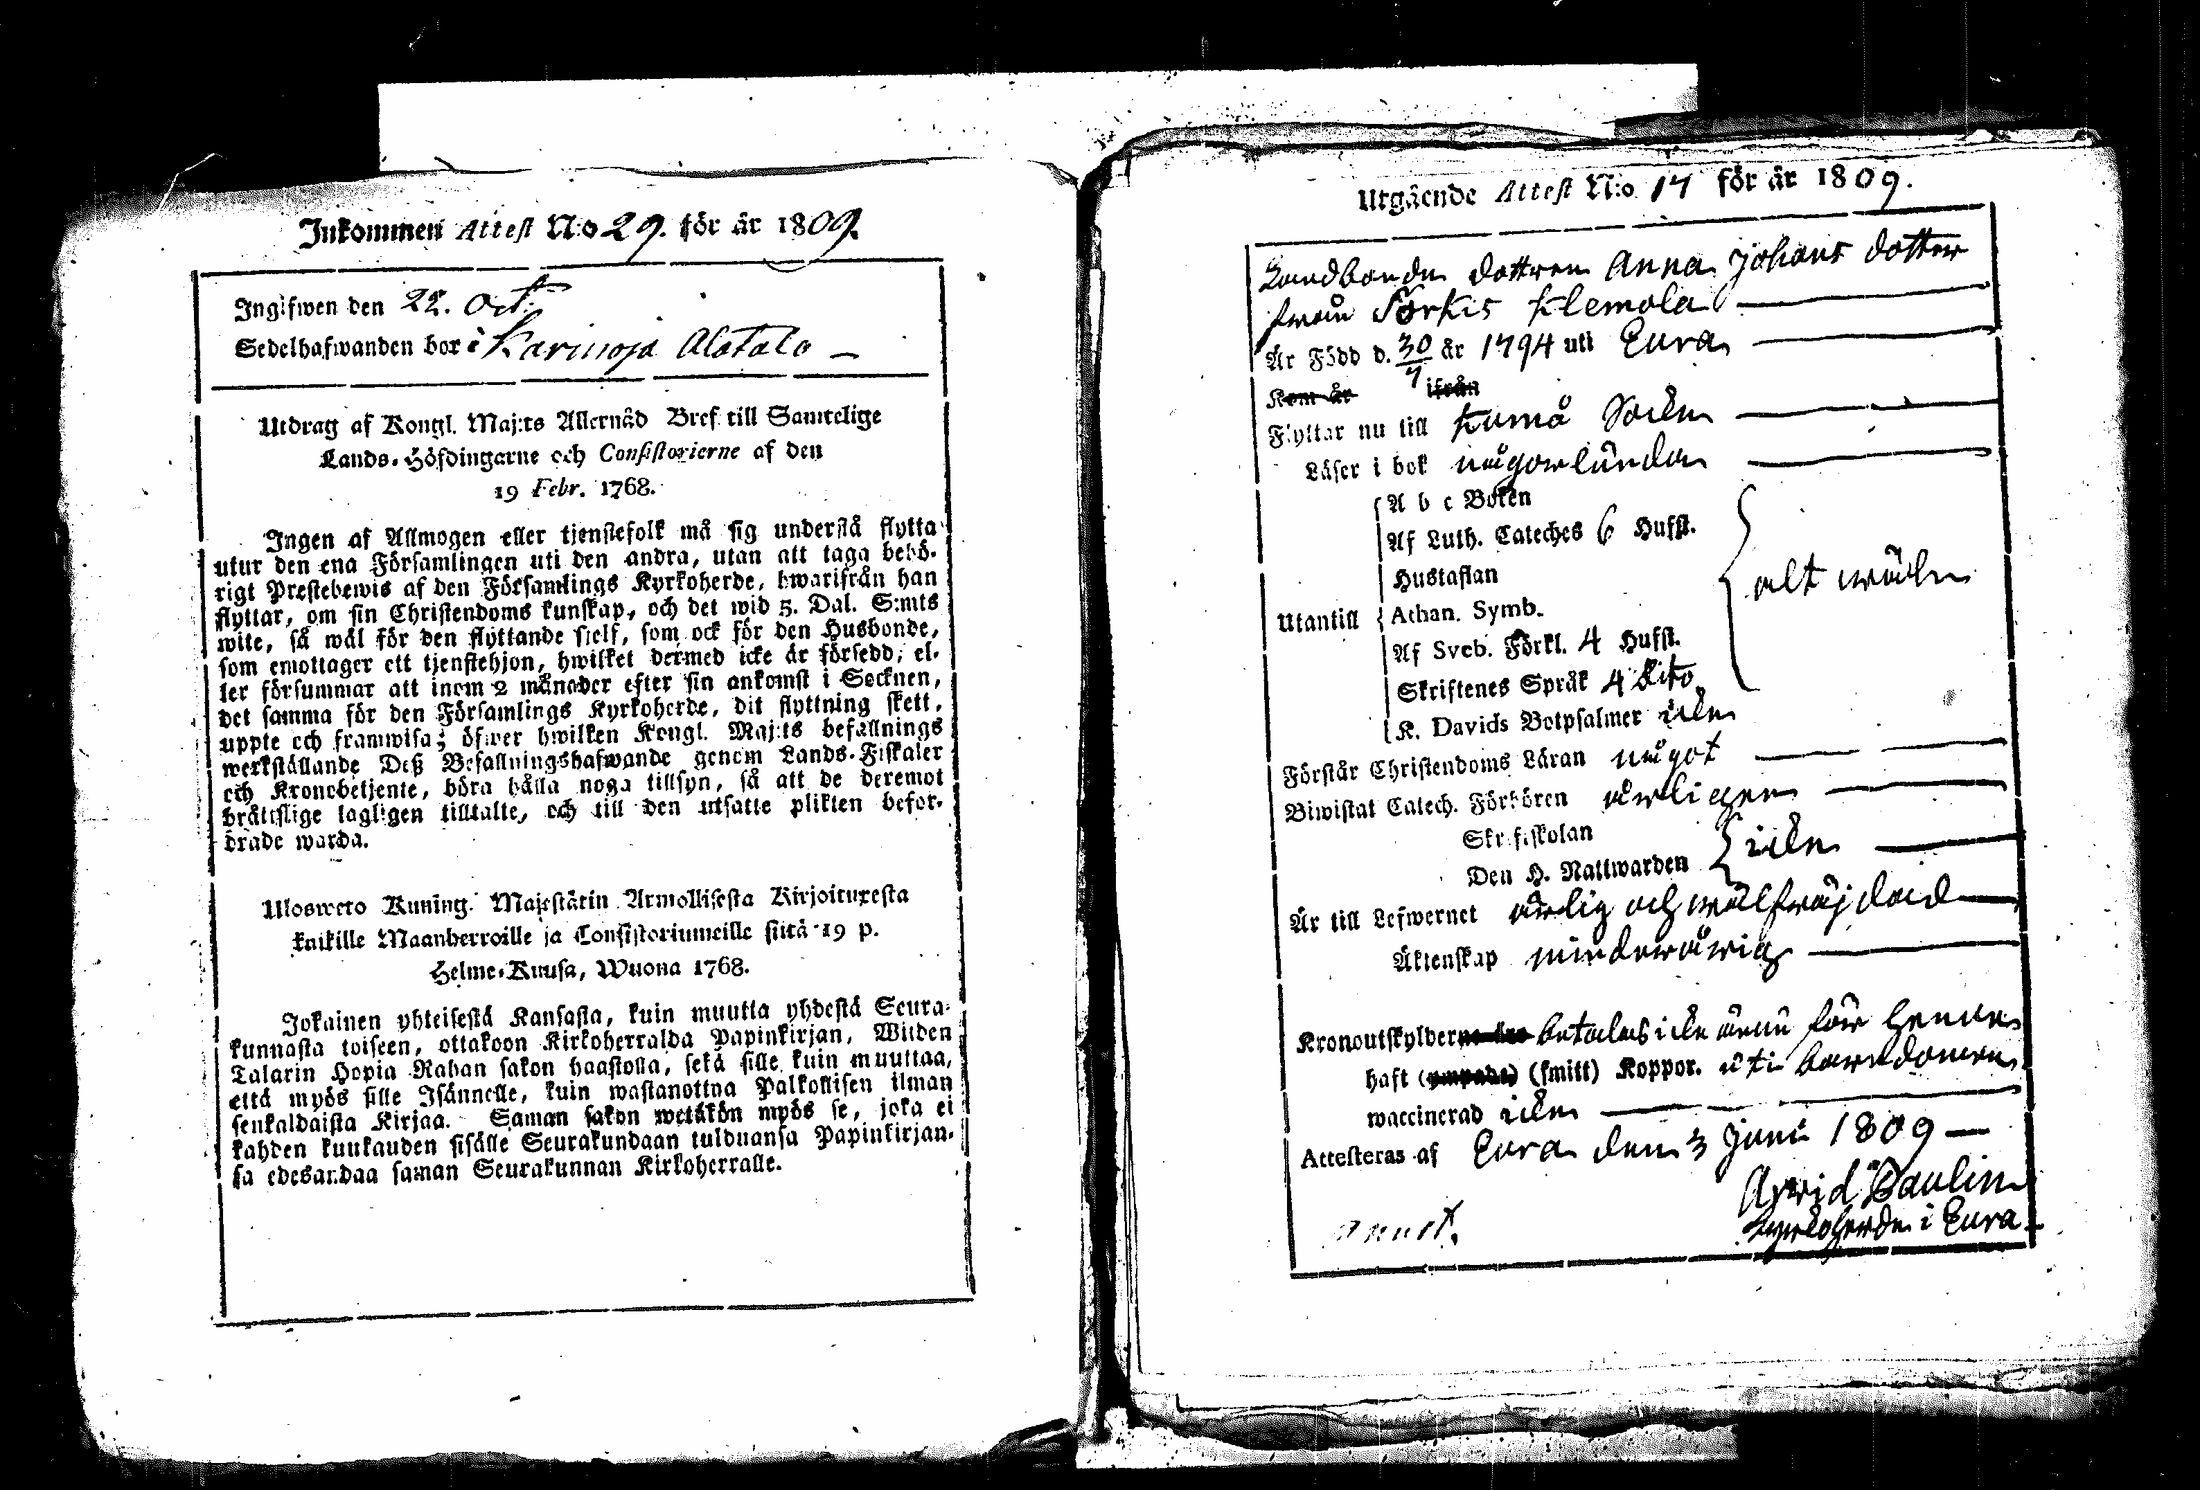 Inkommen Attest N:o 29. för år 1809.
Ingifwen den 22. Oct:
Sedelhafwanden bor i Karinoja Alatalo
Utdrag af Kongl. Maj:ts Allernåd Bref till Samtelige
Lands-Höfdingarne och Consistorierne af den
19 Febr. 1768.
Ingen af Allmogen eller tjenstefolk må sig understå flytta
utur den ena Församlingen uti den andra, utan att taga behö-
rigt Prestebewis af den Församlings Kyrkoherde, hwarifrån han
flyttar, om sin Christendoms kunskap, och det wid 5. Dal. S:mts
wite, så wäl för den flyttande sielf, som ock för den Husbonde,
som emottager ett tjenstehjon, hwilket dermed icke är försedd, el-
ler försummar att inom 2 månader efter sin ankomst i Socknen,
det samma för den Församlings Kyrkoherde, dit flyttning skett,
uppte och framwisa; öfwer hwilken Kongl. Maj:ts befallnings
werkställande Deß Befallningshafwande genom Lands-Fiskaler
och Kronobetjente, böra hålla noga tillsyn, så att de deremot
bråttslige lagligen tilltalte, och till den utsatte plikten befor-
drade warda.
Ulosweto Kuning. Majestätin Armollisesta Kirjoituxesta
kaikille Maanherroille ja Consistoriumeille siitä 19 p.
Helme-Kuusa, Wuona 1768.
Jokainen yhteisestä Kansasta, kuin muutta yhdestä Seura-
kunnasta toiseen, ottakoon Kirkoherralda Papinkirjan, Wiiden
Talarin Hopia Rahan sakon haastolla, sekä sille kuin muuttaa,
että myös sille Isännelle, kuin wastanottna Palkollisen ilman
senkaldaista Kirjaa. Saman sakon wetäkön myös se, joka ei
kahden kuukauden sisälle Seurakundaan tulduansa Papinkirjan-
sa edesandaa saman Seurakunnan Kirkoherralle.
Utgående Attest N:o 17 för år 1809.
Landbonde dottren Anna Johans dotter
från Sorkis Klemola
Är Född d. 30/7 år 1794 uti Eura
Kom år ifrån
Flyttar nu till Kumå Socken
Läser i bok någorlunda
A b c Boken
Af Luth. Cateches 6 Hufst.
Hustaflan
Utantill Athan. Symb. alt wäl
Af Sveb. Förkl. 4 Hufst.
Skriftenes Språk 4 dito
K. Davids Botpsalmer icke
Förstår Christendoms Läran något
Biwistat Catech. Förhören årligen
Skriftskolan
Den H. Nattwarden icke
Är till Lefwernet ärlig och wälfräjdad
Äktenskap minderårig
Kronoutskylderne betalas icke ännu för henne
haft (ympade) (smitt) Koppor. uti barndomen
waccinerad icke
Attesteras af Eura den 3 Juni 1809
Arvid Paulin
Kyrkoherde i Eura